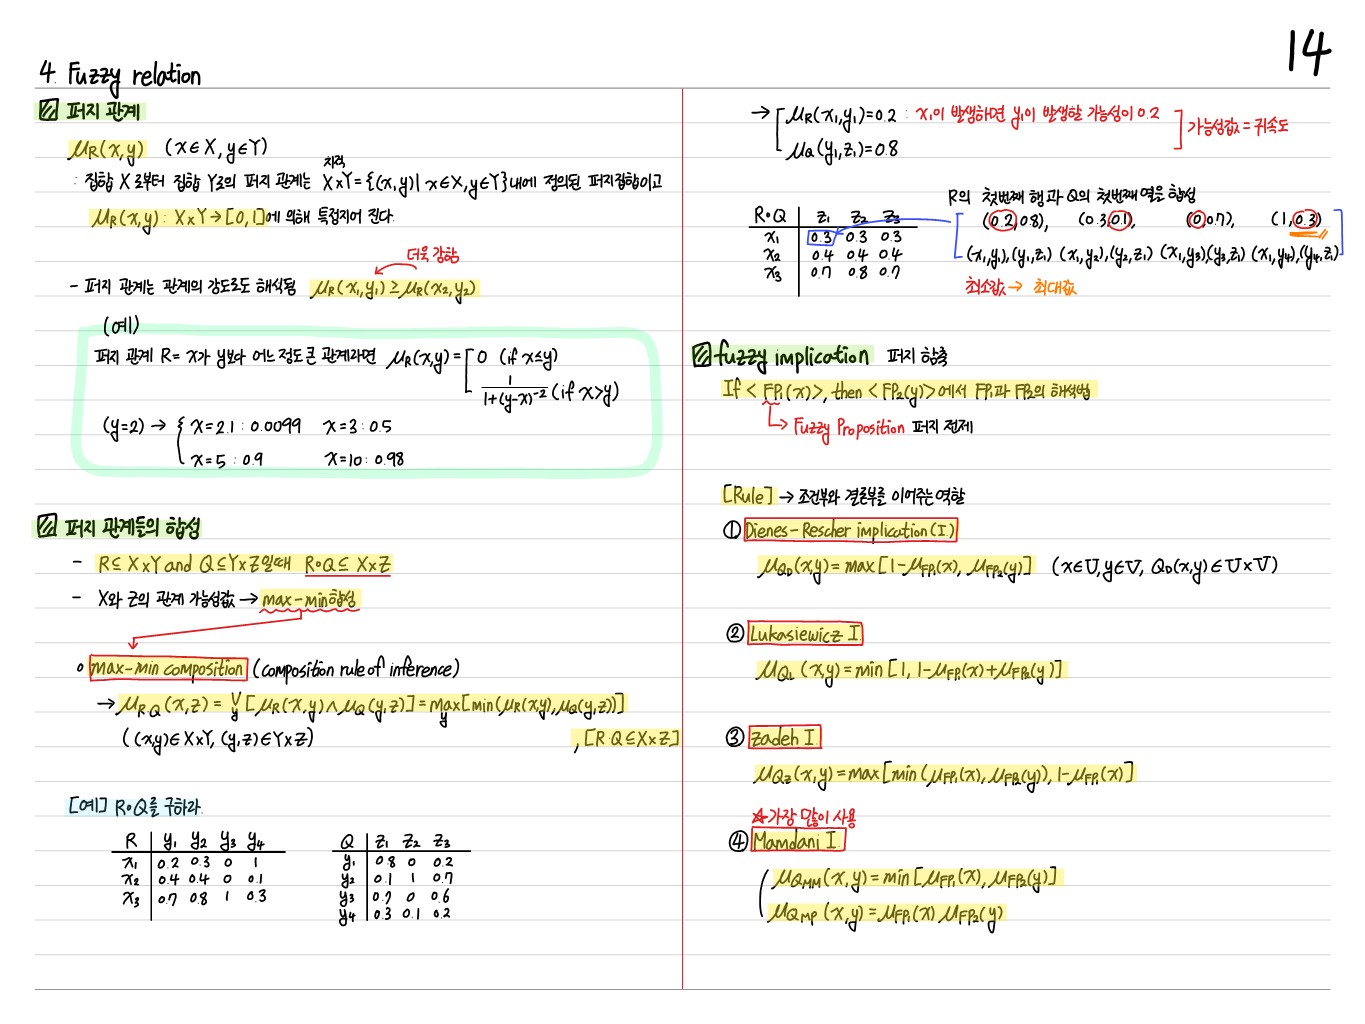 14
4. Fuzzy relation
퍼지 관계
μR(x,y) (x∈X, y∈Y)
직적
: 집합 X로부터 집합 Y로의 퍼지 관계는 X×Y={(x,y)| x∈X, y∈Y}내에 정의된 퍼지집합이고
μR(x,y) : X×Y→[0,1]에 의해 특징지어 진다.
더욱 강함
- 퍼지 관계는 관계의 강도로도 해석됨 μR(x1,y1)≥μR(x2,y2)
(예)
퍼지 관계 R= x가 y보다 어느정도 큰 관계라면 μR(x,y)= 0 (if x≤y)
1/1+(y-x)^-2 (if x>y)
(y=2) → { x=2.1 : 0.0099 x=3 : 0.5
x=5 : 0.9 x=10 : 0.98
퍼지 관계들의 합성
- R⊆X×Y and Q⊆Y×Z일때 R∘Q⊆X×Z
- X와 Z의 관계 가능성값 → max-min합성
o max-min composition (composition rule of inference)
→ μR·Q(x,z) = ∨y [μR(x,y)∧μQ(y,z)] = max y[min(μR(x,y), μQ(y,z))]
((x,y)∈X×Y, (y,z)∈Y×Z) , [R·Q⊆X×Z]
[예] R∘Q를 구하라.
R y1 y2 y3 y4
x1 0.2 0.3 0 1
x2 0.4 0.4 0 0.1
x3 0.7 0.8 1 0.3
Q z1 z2 z3
y1 0.8 0 0.2
y2 0.1 1 0.7
y3 0.7 0 0.6
y4 0.3 0.1 0.2
→ [ μR(x1,y1)=0.2 : x1이 발생하면 y1이 발생할 가능성이 0.2
μQ(y1,z1)=0.8
] 가능성값=귀속도
R의 첫번째 행과 Q의 첫번째 열을 합성
(0.2, 0.8), (0.3, 0.1), (0, 0.7), (1, 0.3)
(x1,y1),(y1,z1) (x1,y2),(y2,z1) (x1,y3),(y3,z1) (x1,y4),(y4,z1)
최소값 → 최대값
R∘Q z1 z2 z3
x1 0.3 0.3 0.3
x2 0.4 0.4 0.4
x3 0.7 0.8 0.7
fuzzy implication 퍼지 함축
If <FP1(x)>, then <FP2(y)>에서 FP1과 FP2의 해석법
→ Fuzzy Proposition 퍼지 전제
[Rule] → 조건부와 결론부를 이어주는 역할
① Dienes-Rescher implication(I.)
μQD(x,y)=max[1-μFP1(x), μFP2(y)] (x∈U, y∈V, QD(x,y)∈U×V)
② Lukasiewicz I.
μQL(x,y)=min[1, 1-μFP1(x)+μFP2(y)]
③ Zadeh I.
μQZ(x,y)=max[min(μFP1(x), μFP2(y)), 1-μFP1(x)]
☆가장 많이 사용
④ Mamdani I.
μQMM(x,y)=min[μFP1(x), μFP2(y)]
μQMP(x,y)=μFP1(x) μFP2(y)